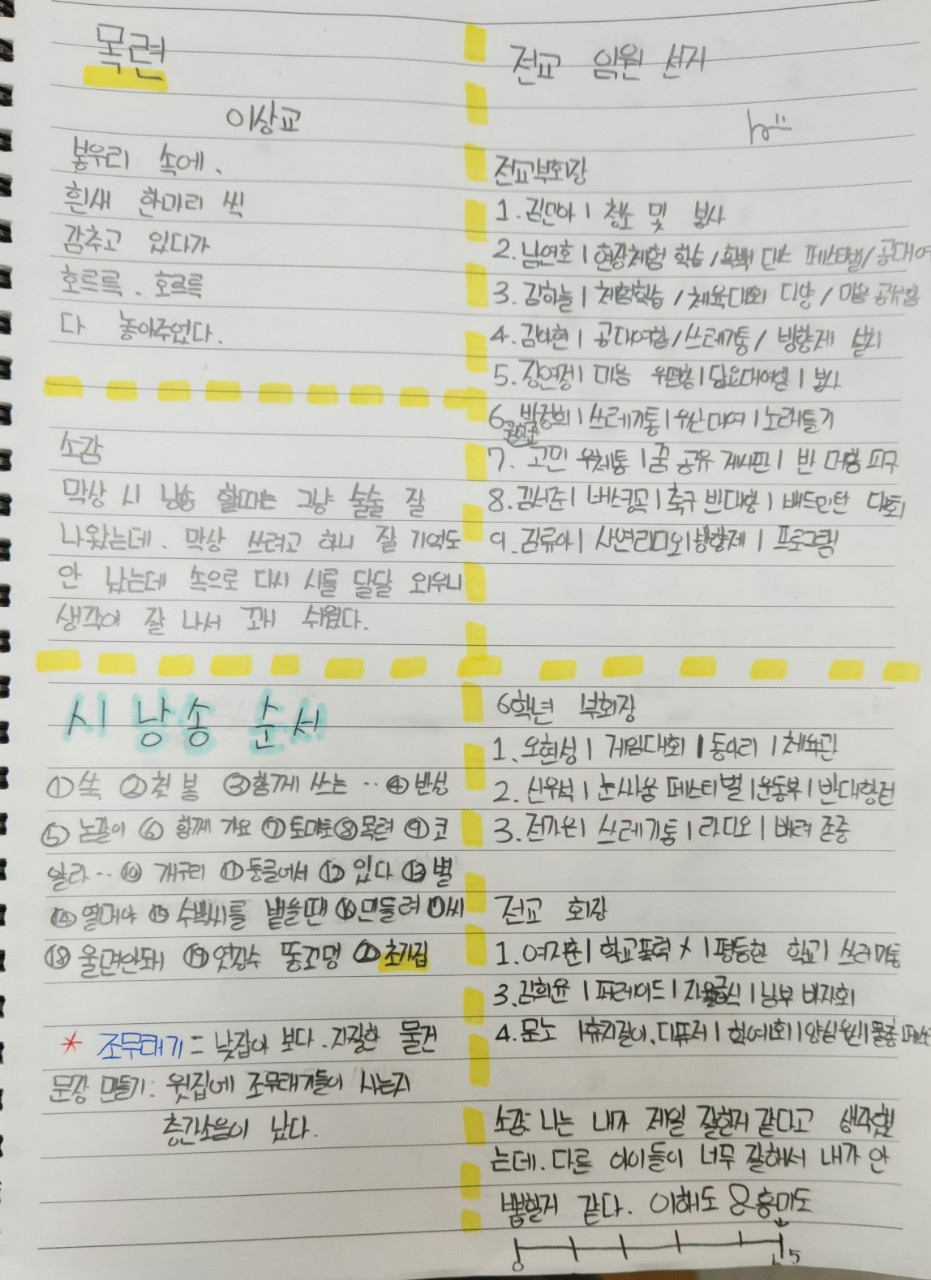 목련
이상교
봉우리 속에.
흰새 한마리 씩
감추고 있다가
호르륵. 호르륵
다 놓아주었다.
소감
막상 시 낭송 할때는 그냥 술술 잘
나왔는데. 막상 쓰려고 하니 잘 기억도
안 났는데 속으로 다시 시를 달달 외우니
생각이 잘 나서 꽤 쉬웠다.
시 낭송 순서
① 쑥 ② 첫 봄 ③ 함께 쓰는 ‥ ④ 반성
⑤ 논갈이 ⑥ 함께 가요 ⑦ 토마토 ⑧ 목련 ⑨ 코
알라‥ ⑩ 개구리 ⑪ 둥글어서 ⑫ 있다 ⑬ 별
⑭ 열려야 ⑮ 수박씨를 뱉을땐 ⑯ 민들레 ⑰ 씨
⑱ 울면안돼 ⑲ 엿장수 똥꼬멍 ⑳ 초가집
* 조무래기 = 낮잡아 보다. 자잘한 물건
문장 만들기: 윗집에 조무래기들이 사는지
층간소음이 났다.
전교 임원 선거
전교부회장
1. 김민아 | 청소 및 봉사
2. 남연호 | 현장체험 학습 / 댄스 페스티벌 / 공대여
3. 김하늘 | 체험학습 / 체육대회 다양 / 마음 공유함
4. 김나현 | 공대여함 / 쓰레기통 / 방향제 설치
5. 장연정 | 마음 우편함 | 담요대여실 | 봉사
6. 박장희 | 쓰레기통 | 우산대여 | 노래틀기
7. 고민 우체통 | 꿈 공유 게시판 | 반 대항 피구
8. 김서준 | 버스킹곡 | 축구 반대항 | 배드민턴 대회
9. 김류아 | 사연라디오 | 방향제 | 프로그램
6학년 부회장
1. 오현성 | 게임대회 | 동아리 | 체육관
2. 신우석 | 눈싸움 페스티벌 | 운동부 | 반대항전
3. 전가온 | 쓰레기통 | 라디오 | 배려 존중
전교 회장
1. 여지훈 | 학교폭력 X | 평등한 학교 | 쓰레기통
3. 김희윤 | 퍼레이드 | 자율급식 | 남부 바자회
4. 문노 | 휴지걸이, 디퓨저 | 학예회 | 양심우산 | 물총 페스
소감: 나는 내가 제일 잘한거 같다고 생각했
는데. 다른 아이들이 너무 잘해서 내가 안
뽑힐거 같다. 이해도 & 흥미도
0 5